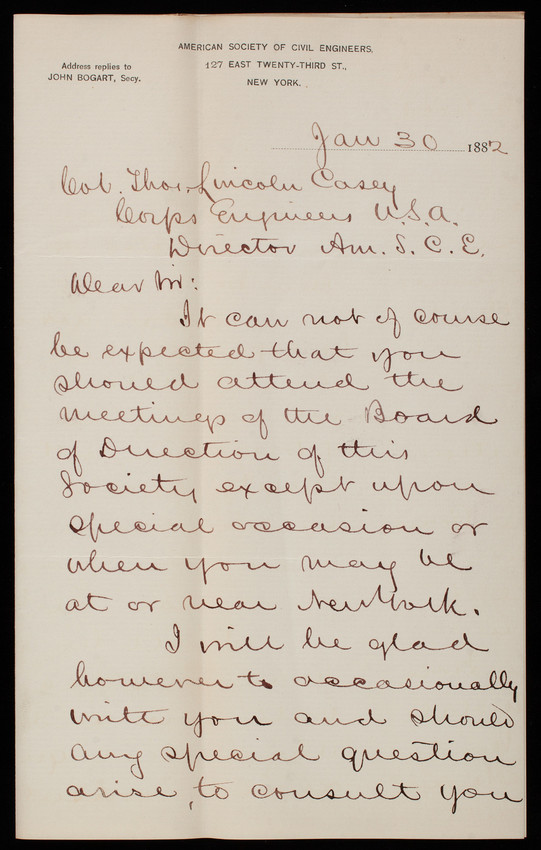 AMERICAN SOCIETY OF CIVIL ENGINEERS.
127 EAST TWENTY-THIRD ST.,
NEW YORK.
Address replies to
JOHN BOGART, Secy.
Jan 30 1882
Col. Thos. Lincoln Casey
Corps Engineers U.S.A.
Director Am. S. C. E.
Dear Sir:
It can not of course
be expected that you
should attend the
meetings of the Board
of Direction of this
Society except upon
special occasion or
when you may be
at or near New York.
I will be glad
however to occasionally
write you and should
any special question
arise, to consult you